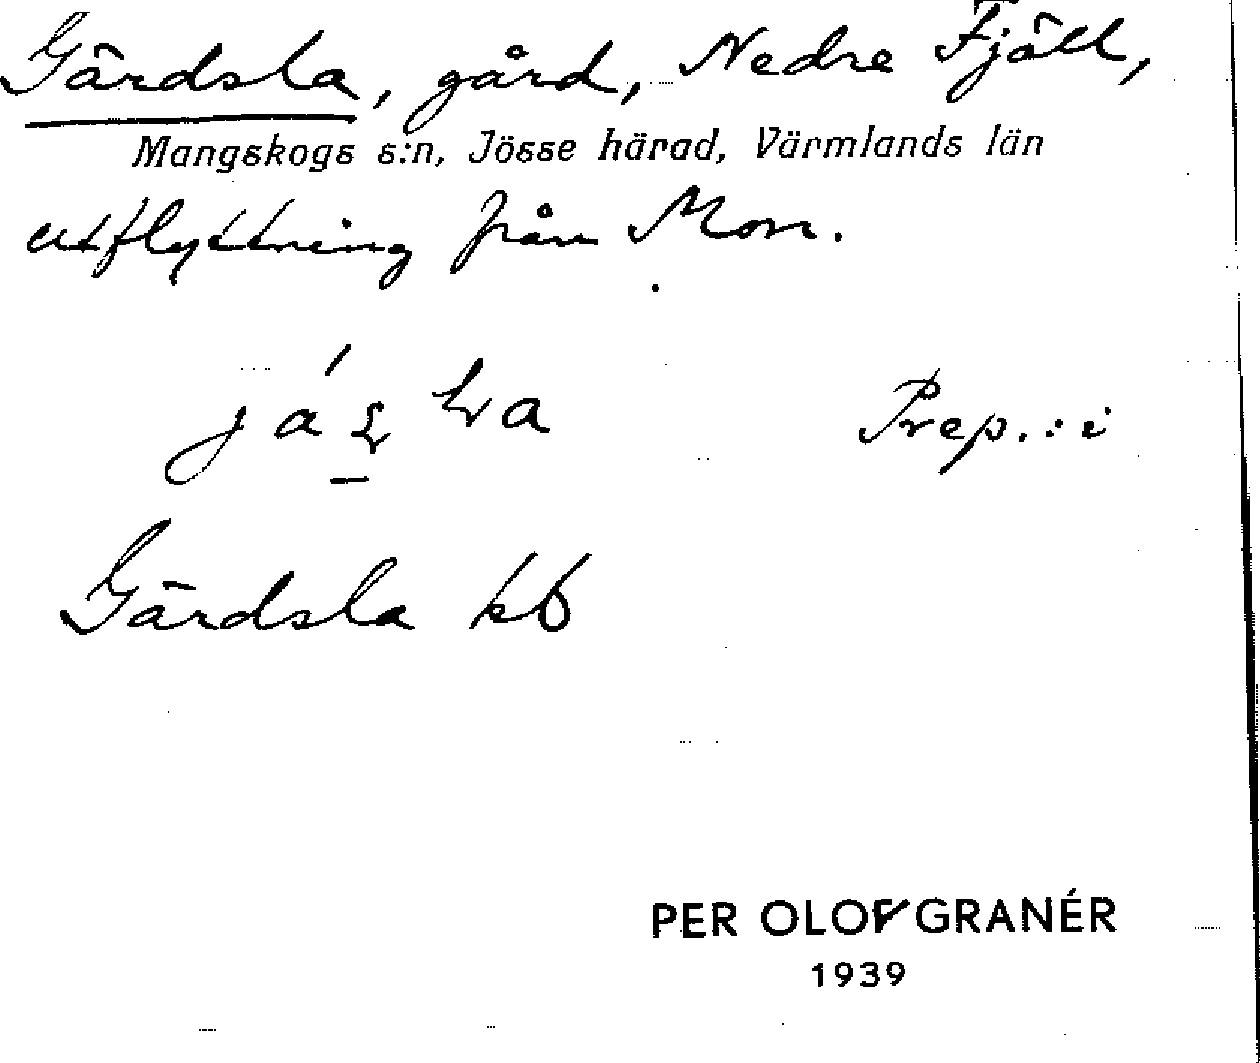 Gärdsla, gård, Nedre Fjäll,
Mangskogs s:n, Jösse härad, Värmlands län
utflyttning från Mon.
Prep.: i
Gärdsla kb
PER OLOF GRANÉR
1939